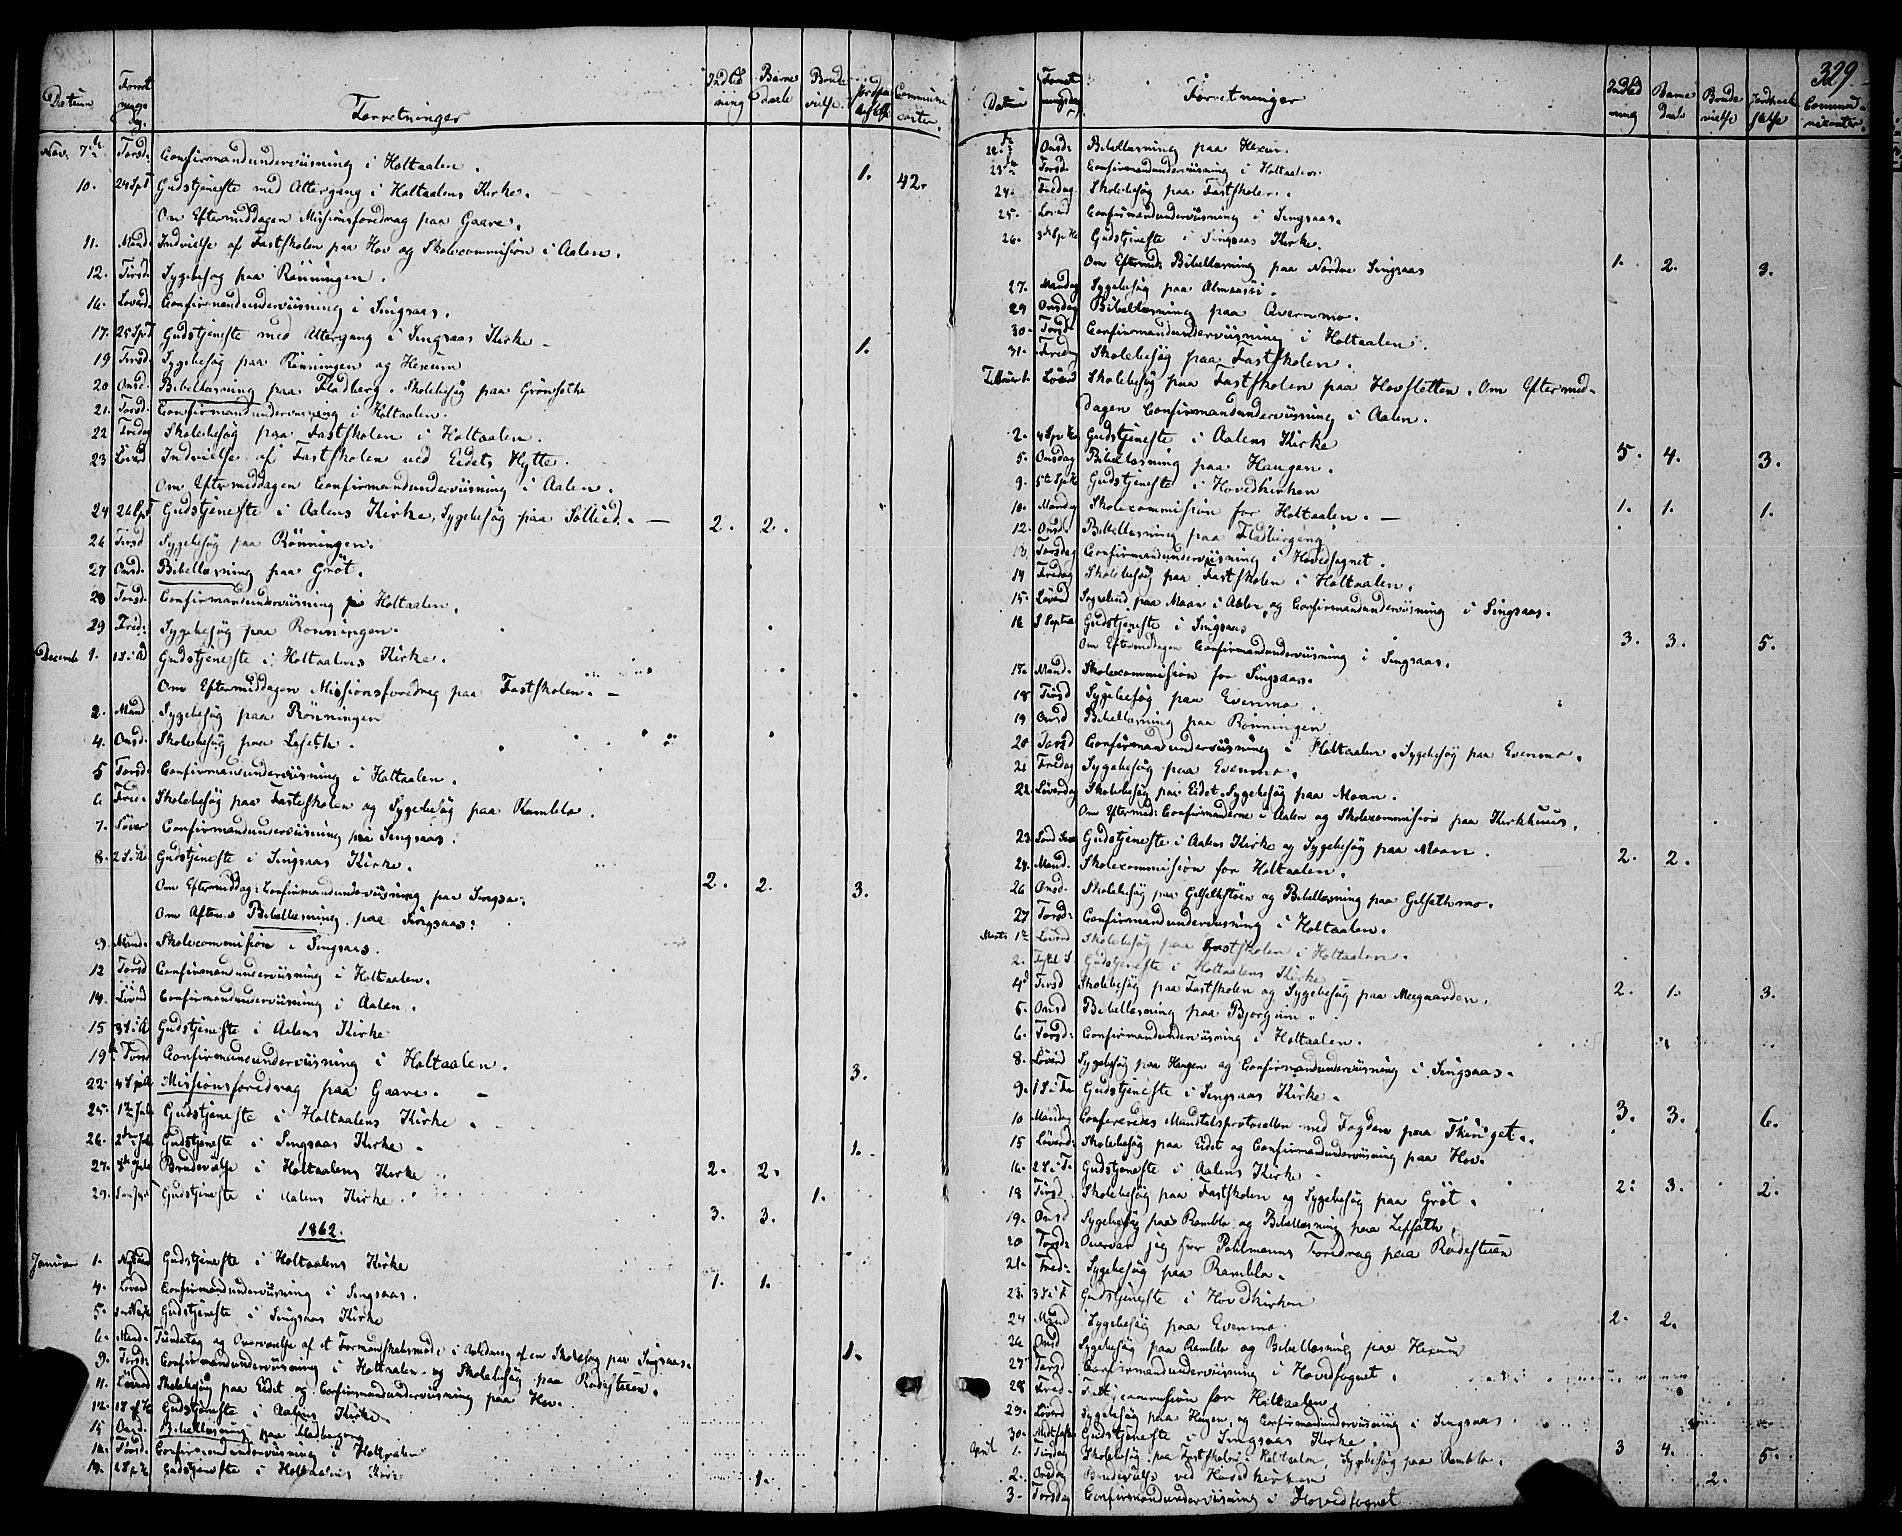 Datum Forretnings Dg. Forretninger Indled ning Barne daab Brude vielse Jordpaa kastelse Communi canter.
Nov. 7de Torsd: Confirmandunderviisning i Holtaalen.
10. 24 S p T Gudstjeneste med Altergang i Holtaalens Kirke - 1. 42.
Om Eftermiddagen Misionsforedrag paa Gaare.
11. Mand. Indvielse af Fastskolen paa Hov og Skolecommision i Aalen.
12. Tirsd. Sygebesøg paa Rönningen.
16. Loverd. Confirmandunderviisning i Singsaas.
17. 25 S p T Gudstjeneste med Altergang i Singsaas Kirke - 1.
19 Tirsd. Sygebesøg paa Rönningen og Hexum
20 Onsd. Bibellæsning paa Fladberg. Skolebesøg paa Grönsethe
21. Torsd. Confirmandunderviisning i Holtaalen.
22 Fredag Skolebesøg paa Fastskolen i Holtaalen.
23 Löverd Indvielse af Fastskolen ved Eidets Hytte.
Om Eftermiddagen Confirmandunderviisning i Aalen.
24 26 S p T Gudstjeneste i Aalens Kirke, Sygebesøg paa Sollied. - 2. 2.
26 Tirsd Sygebesøg paa Rönningen.
27 Onsd. Bibellæsning paa Gröt.
28 Torsd. Confirmandunderviisning i Holtaalen.
29 Fred: Sygebesøg paa Ronningen.
Decemb 1. 1 S i A Gudstjeneste i Holtaalens Kirke.
Om Eftermiddagen Missionsforedrag paa Fastskolen. -
2. Mand Sygebesøg paa Rönningen
4. Onsd. Skolebesøg paa Lefseth.
5 Torsd. Confirmandunderviisning i Holtaalen.
6 Fred. Skolebesøg paa Fasteskolen og Sygebesøg paa Ramblo.
7. Löver Confirmandunderviisning paa Singsaas.
8. 2 S i A. Gudstjeneste i Singsaas Kirke. 2. 2. 3.
Om Eftermiddag: Confirmandunderviisning paa Singsa:
Om Aftenen Bibellæsning paa Singsaas:
9. Mand. Skolecommision i Singsaas.
12 Torsd Confirmandunderviisning i Holtaalen.
14. Löverd Confirmandunderviisning i Aalen.
15 3 S i A Gudstjeneste i Aalens Kirke
19 Torsd Confirmandunderviisning i Holtaalen. 3.
22. 4 S Missionsforedrag paa Gaare. -
25. 1ste Jul Gudstjeneste i Holtaalens Kirke.
26. 2den Jul Gudstjeneste i Singsaas Kirke. 1.
27. 3die Jule Brudevielse i Holtaalens Kirke 2. 2.
29. Gudstjeneste i Aalens Kirke. 1.
3. 3.
1862.
Januar 1. Nytaar Gudstjeneste i Holtaalens Kirke
4. Löverd Confirmandunderviisning i Singsaas. 1. 1.
5. Gudstjeneste i Singsaas Kirke
6. Mand. og Overværelse af et Formandskabsmöde i Anledning af en Skolesag paa Singsaas. 1.
9. Torsd: Confirmandunderviisning i Holtaalen og Skolebesøg paa Rödestuen.
11. Löverd Skolebesøg paa Eidet og Confirmandunderviisning paa Hov.
12. Gudstjeneste i Aalens Kirke
15 Onsd. Bibellæsning paa Fladbergeng
16. Torsd. Confirmandunderviisning i Holtaalen
19. 2 S Gudstjeneste i Holtaalens Kirke 1.
329.
Datum Forretningsdag Forretninger Indled ning Barne Daab Brude vielse Jordkaste lse Communi canter.
22de Onsd: Bibellæsning paa Hexum.
23de Torsd. Confirmandunderviisning i Holtaalen.
24. Fredag Skolebesøg paa Fastskolen.
25. Löverd Confirmandunderviisning i Singsaas.
26. Gudstjeneste i Singsaas Kirke. 1. 2. 3.
Om Eftermid: Bibellæsning paa Nordre Singsaas
27. Mandag Sygebesøg paa Almaasii.
29 Onsdag Bibellæsning paa Evenmo.
30. Torsd. Confirmandunderviisning i Holtaalen.
31. Fredag Skolebesøg paa Fastskolen.
Februar 1. Löverd Skolebesøg paa Fastskolen paa Hovsletten. Om Eftermid-
dagen Confirmandunderviisning i Aalen.
2. Gudstjeneste i Aalens Kirke 5. 4. 3.
5. Onsdag Bibellæsning paa Haugen.
9. Gudstjeneste i Hovedkirken 1. 1. 1.
10. Mandag Skolecommision for Holtaalen. -
12. Onsd. Bibellæsning paa Fladbergeng
13 Torsdag Confirmandunderviisning i Hovedsognet.
14 Fredag Skolebesøg paa Fastskolen i Holtaalen.
15. Löverd Sogebud paa Moan i Aalen og Confirmandunderviisning i Singsaas.
16 S Septua Gudstjeneste i Singsaas 3. 3. 5.
Om Eftermiddagen Confirmandunderviisning i Singsaas.
17. Mand. Skolecommision for Singsaas.
18 Tirsd Sygebesøg paa Evenmo.
19 Onsd Bibellæsning paa Rönningen
20 Torsd Confirmandunderviisning i Holtaalen. Sygebesøg paa Evenmo.
21 Fredag Sygebesøg paa Evenmo.
22. Löverdag Skolebesøg paa Eidet. Sygebesøg paa Moan.
Om Eftermid: Confirmanderne i Aalen og Skolecommision paa Kirkhuus.
23. Gudstjeneste i Aalens Kirke og Sygebesøg paa Moan. 2. 2.
24. Mand. Skolecommission for Holtaalen.
26 Onsd. Skolebesøg paa og Bibellæsning paa Gelsethmo.
27 Torsd: Confirmandunderviisning i Holtaalen.
Marts 1ste Löverd Skolebesøg paa Fastskolen i Holtaalen.
2. Fastel S Gudstjeneste i Holtaalens Kirke - 2. 1. 3.
4de Tirsd Skolebesøg paa Fastskolen og Sygebesøg paa Meegaarden.
5. Onsd Bibellæsning paa Bjorgum.
6. Torsd: Confirmandunderviisning i Holtaalen.
8. Löverd Sygebesøg paa Haugen og Confirmandunderviisning i Singsaas.
9. 1 S i Fa Gudstjeneste i Singsaas Kirke. 3. 3. 6.
10 Mandag Confereredes Mandtalsprotocollen med Fogden paa Thinget.
15 Löverd: Skolebesøg paa Eidet og Confirmandunderviisning paa Hov.
16. 2 S i F. Gudstjeneste i Aalens Kirke. 2. 3. 2.
18 Tirsd. Skolebesøg paa Fastskolen og Sygebesøg paa Gröt.
19. Onsd Sygebesøg paa Ramblo og Bibellæsning paa Lefseth.
20 Torsd: Overvar jeg Herr Pohlmanns Foredrag paa Rödestuen
21. Fred: Sygebesøg paa Ramblo.
23. 3 S i F Gudstjeneste i Hovedkirken 2. 2.
24 Mand Sygebesøg paa Evenmo
26 Onsd Sygebesøg paa Ramblo og Bibellæsning paa Hexum
27 Torsd Confirmandunderviisning i Hovedsognet.
28 Fred. commision for Holtaalen.
29. Löverd Sygebesøg paa Haugen og Confirmandunderviisning i Singsaas
30. Midtfaste Gudstjeneste i Singsaas Kirke. 3 4. 5.
April 1. Tirsdag Skolebesøg paa Fastskolen i Holtaalen, Sygebesøg paa Ramblo.
2. Onsdag Brudevielse ved Hovedkirken 2.
3. Torsdag Confirmandunderviisning i Hovedsognet